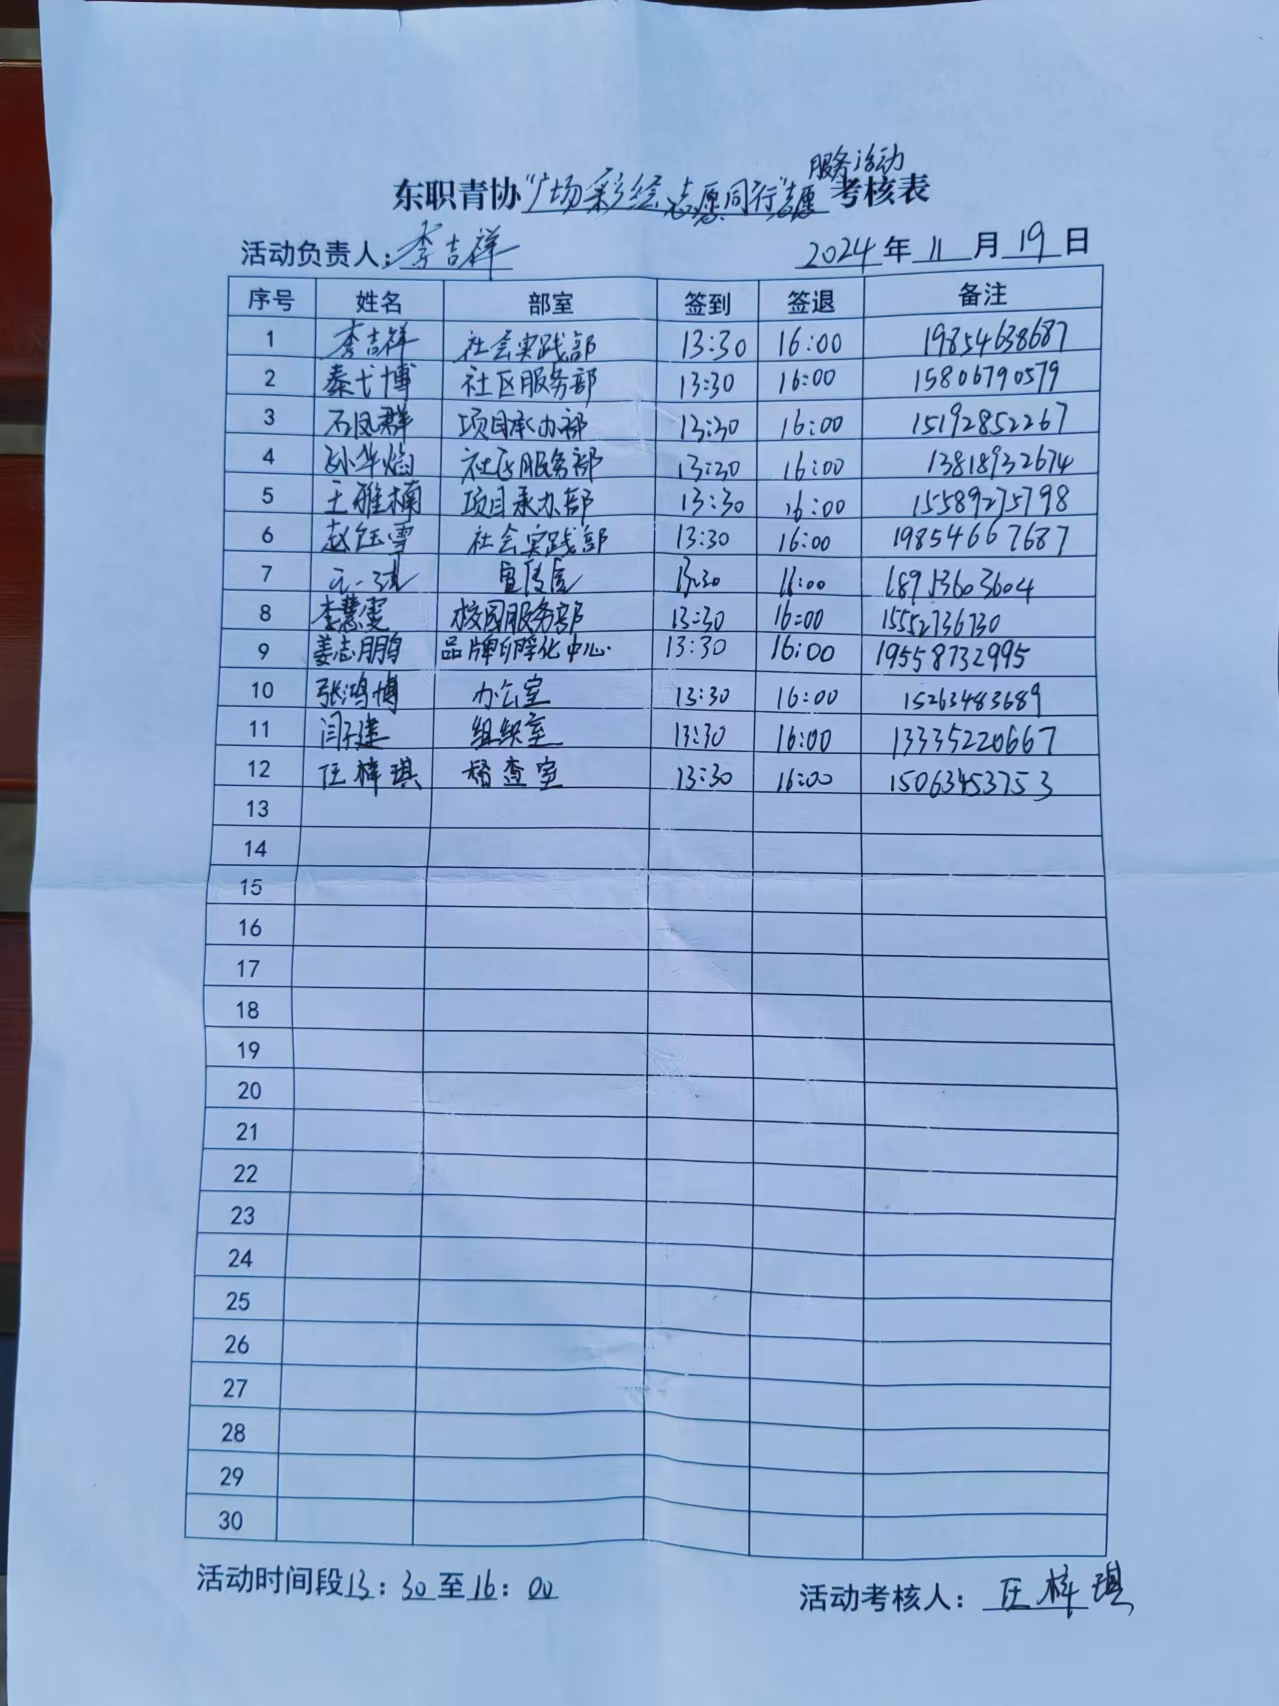 服务活动
东职青协“广场彩绘志愿同行”志愿考核表
活动负责人:李吉祥 2024年11月19日
序号 姓名 部室 签到 签退 备注
1 李吉祥 社会实践部 13:30 16:00 19854638687
2 秦弋博 社区服务部 13:30 16:00 15806790579
3 石凤群 项目承办部 13:30 16:00 15192852267
4 孙华焰 社区服务部 13:30 16:00 13818932674
5 王雅楠 项目承办部 13:30 16:00 15589275798
6 赵钰雪 社会实践部 13:30 16:00 19854667687
7 13:30 16:00 18913603604
8 李慧雯 校园服务部 13:30 16:00 15552736730
9 姜志鹏 品牌孵化中心 13:30 16:00 19558732995
10 张鸿博 办公室 13:30 16:00 15263483689
11 闫子建 组织室 13:30 16:00 13335220667
12 任梓琪 督查室 13:30 16:00 15063453753
13
14
15
16
17
18
19
20
21
22
23
24
25
26
27
28
29
30
活动时间段13:30至16:00 活动考核人:任梓琪